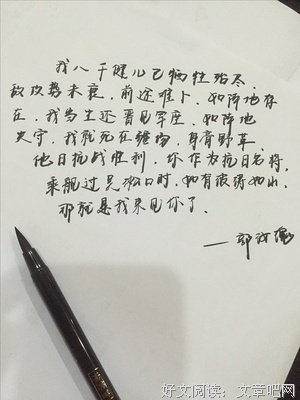 我八千健儿已牺牲殆尽，
敌攻势未衰，前途难卜，如阵地存
在，我当生还晋见军座，如阵地
失守，我就死在疆场，身膏野革，
他日抗战胜利，你作为抗日名将，
乘舰过吴淞口时，如有波涛如山，
那就是我来见你了。
好文阅读：文章吧网